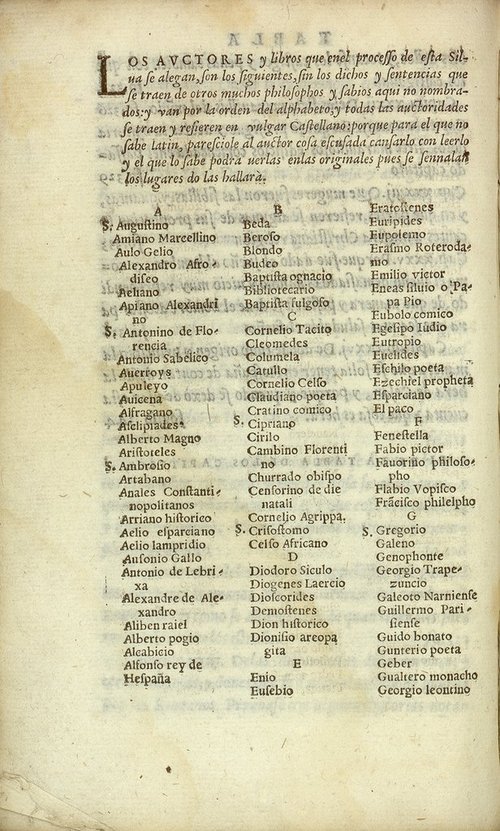 LOS AVCTORES y libros que enel proceſſo de eſta Sil-
ua ſe alegan, ſon los ſiguientes, ſin los dichos y ſentencias que
ſe traen de otros muchos philoſophos y ſabios aqui no nombra-
dos: y van por la orden del alphabeto: y todas las auctoridades
ſe traen y refieren en vulgar Caſtellano: porque para el que no
ſabe latin, pareſciole al auctor coſa eſcuſada canſarlo con leerlo
y el que lo ſabe podra uerlas enlas originales pues ſe ſennalan
los lugares do las hallara.
A
S. Auguſtino
Amiano Marcellino
Aulo Gelio
Alexandro Afro-
diſeo
Aeliano
Apiano Alexandri
no
S. Antonino de Flo-
rencia
Antonio Sabelico
Auerroys
Apuleyo
Auicena
Alfragano
Aſclipiades
Alberto Magno
Ariſtoteles
S. Ambroſio
Artabano
Anales Conſtanti-
nopolitanos
Arriano hiſtorico
Aelio eſparciano
Aelio lampridio
Auſonio Gallo
Antonio de Lebri-
xa
Alexandre de Ale-
xandro
Aliben raiel
Alberto pogio
Alcabicio
Alfonſo rey de
Heſpaña
B
Beda
Beroſo
Blondo
Budeo
Baptiſta ognacio
Bibliotecario
Baptiſta fulgoſo
C
Cornelio Tacito
Cleomedes
Columela
Catullo
Cornelio Celſo
Claudiano poeta
Cratino comico
S. Cipriano
Cirilo
Cambino Florenti
no
Churrado obiſpo
Cenſorino de die
natali
Cornelio Agrippa.
S. Criſoſtomo
Celſo Africano
D
Diodoro Siculo
Diogenes Laercio
Dioſcorides
Demoſtenes
Dion hiſtorico
Dioniſio areopa
gita
E
Enio
Euſebio
Eratoſtenes
Euripides
Eupolemo
Eraſmo Roteroda-
mo
Emilio victor
Eneas ſiluio o Pa-
pa Pio
Eubolo comico
Egeſipo Iúdio
Eutropio
Euclides
Eſchilo poeta
Ezechiel propheta
Eſparciano
El paco
F
Feneſtella
Fabio pictor
Fauorino philoſo-
pho
Flabio Vopiſco
Frãciſco philelpho
G
S. Gregorio
Galeno
Genophonte
Georgio Trape-
zuncio
Galeoto Narnienſe
Guillermo Pari-
ſienſe
Guido bonato
Gunterio poeta
Geber
Gualtero monacho
Georgio leontino